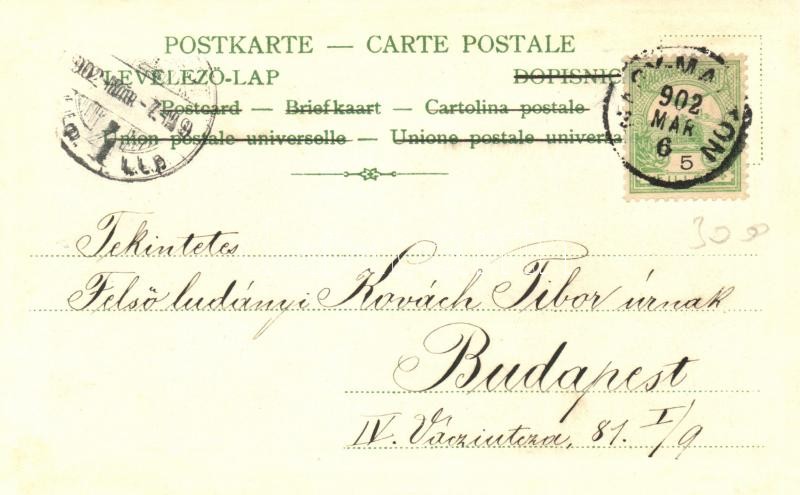 POSTKARTE — CARTE POSTALE
LEVELEZŐ-LAP DOPISNIC
Postcard — Briefkaart — Cartolina postale
Union postale universelle — Unione postale univers
902 MAR 6
5
Tekintetes
Felső ludányi Kovách Tibor úrnak
Budapest
IV. Vácziutcza, 81. I/9